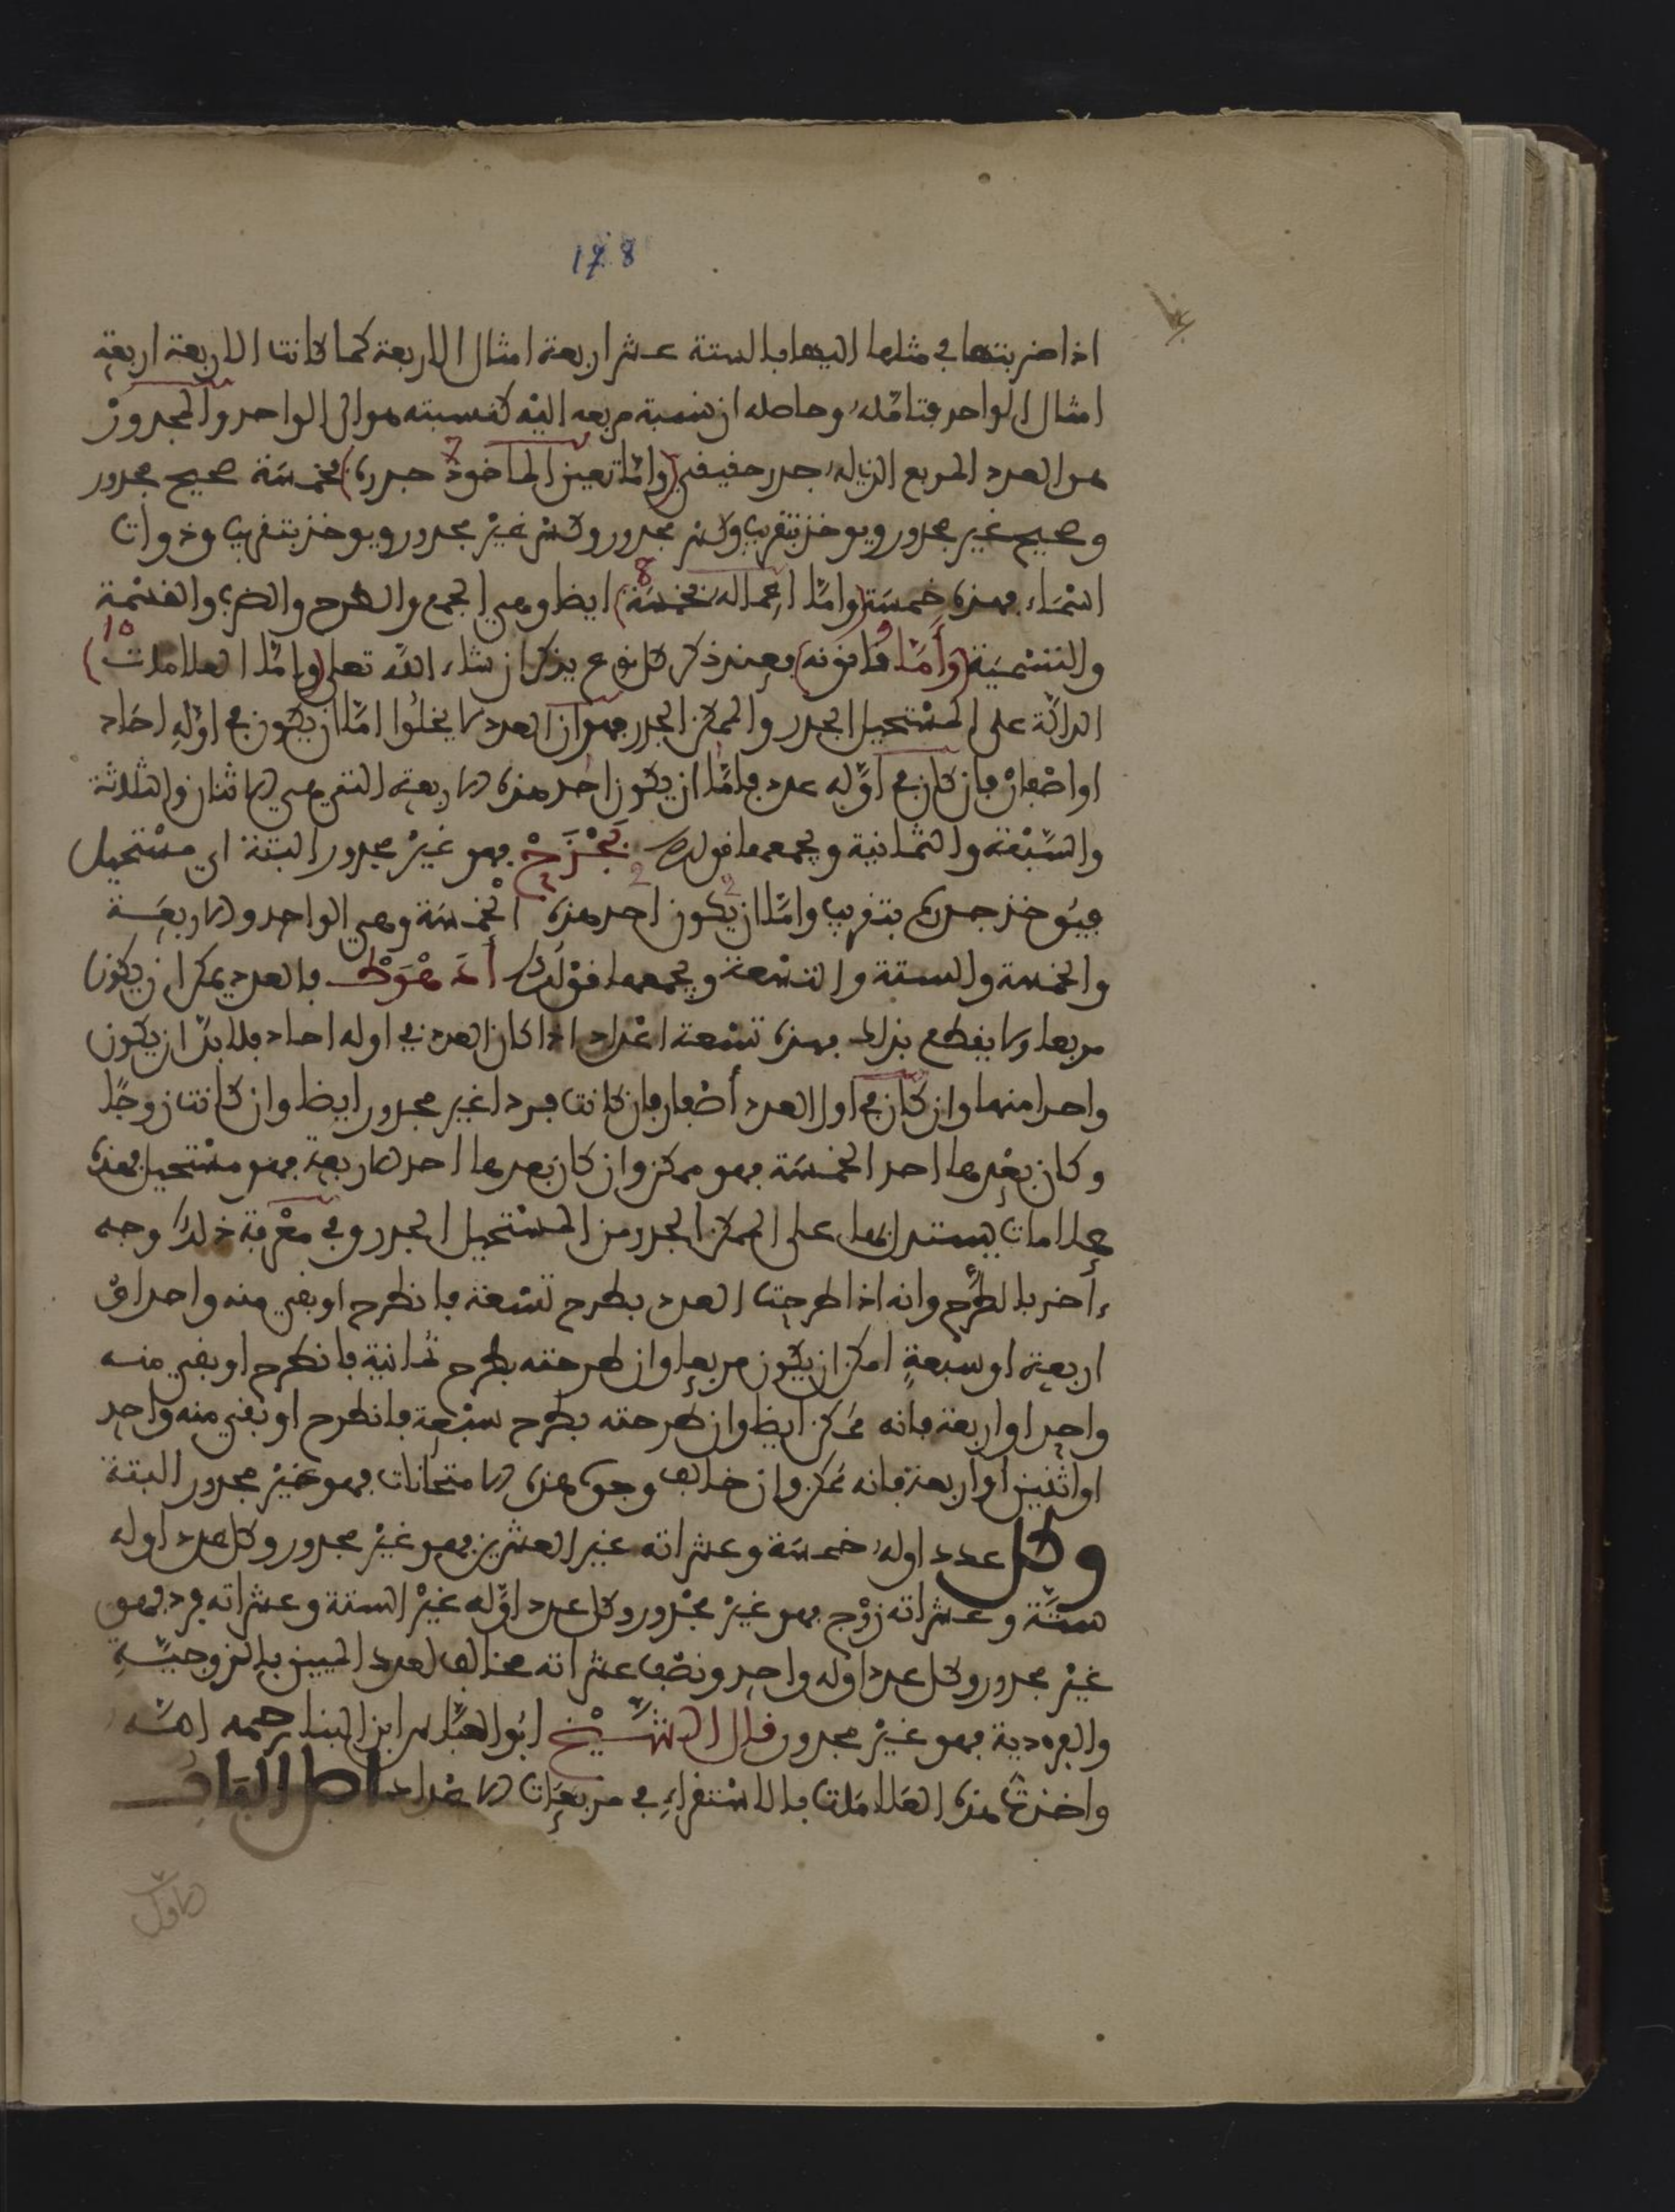 178
اذا ضربتها في مثلها اليها فالستة عشر اربعة امثال الاربعة كما كانت الاربعة اربعة
امثال الواحد فتامله وحاصله ان نسبة مربعه اليه كنسبته هو الى الواحد والمجذور
هو العدد المربع الذي له جذر حقيقي (واما تعين الماخوذ جذره) فخمسة صحيح مجذور
وصحيح غير مجذور ويوخذ بتقريب وكسر مجذور وكسر غير مجذور ويوخذ بتقريب وذوات
اسماء فهذه خمسة (واما اعماله فخمسة) ايضا وهي الجمع والطرح والضرب والقسمة
والتسمية (وأما قانونه) فعند ذكر كل نوع يذكر ان شاء الله تعلى (واما العلامات)
الدالة على المستحيل الجذر والممكن الجذر فهو ان العدد لا يخلوا اما ان يكون في اوله احاد
او اصفار فان كان في اوله عدد فاما ان يكون احد هذه الاربعة التي هي الاثنان والثلاثة
والسبعة والثمانية ويجمعها قولك بجزح فهو غير مجذور البتة اي مستحيل
فيوخذ جذره بتقريب واما ان يكون احد هذه الخمسة وهي الواحد والاربعة
والخمسة والستة والتسعة ويجمعها قولك أدهوط فالعدد يمكن ان يكون
مربعا ولا يقطع بذلك فهذه تسعة اعداد اذا كان العدد في اوله احاد فلا بد ان يكون
واحدا منها وان كان في اول العدد أصفار فان كانت فردا غير مجذور ايضا وان كانت زوجا
وكان بعدها احد الخمسة فهو ممكن وان كان بعدها احد الاربعة فهو مستحيل فهذه
علامات يستدل بها على الممكن الجذر من المستحيل الجذر وفي معرفة ذلك وجه
ءاخر بالطرح وانه اذا طرحت العدد بطرح تسعة فانطرح او بقي منه واحد او
اربعة او سبعة امكن ان يكون مربعا وان طرحته بطرح ثمانية فانطرح او بقي منه
واحد او اربعة فانه ممكن ايضا وان طرحته بطرح سبعة فانطرح او بقي منه واحد
او اثنين او اربعة فانه ممكن وان خالف وجوه هذه الامتحانات فهو غير مجذور البتة
وكل عدد اوله خمسة وعشراته غير العشرين فهو غير مجذور وكل عدد اوله
ستة وعشراته زوج فهو غير مجذور وكل عدد اوله غير الستة وعشراته فرد فهو
غير مجذور وكل عدد اوله واحد ونصف عشراته مخالف لعدد الميين بالزوجية
والفردية فهو غير مجذور قال الشيخ ابو العباس ابن البنا رحمه الله
واخذت هذه العلامات بالاستقراء في مربعات الاعداد اصل الباب